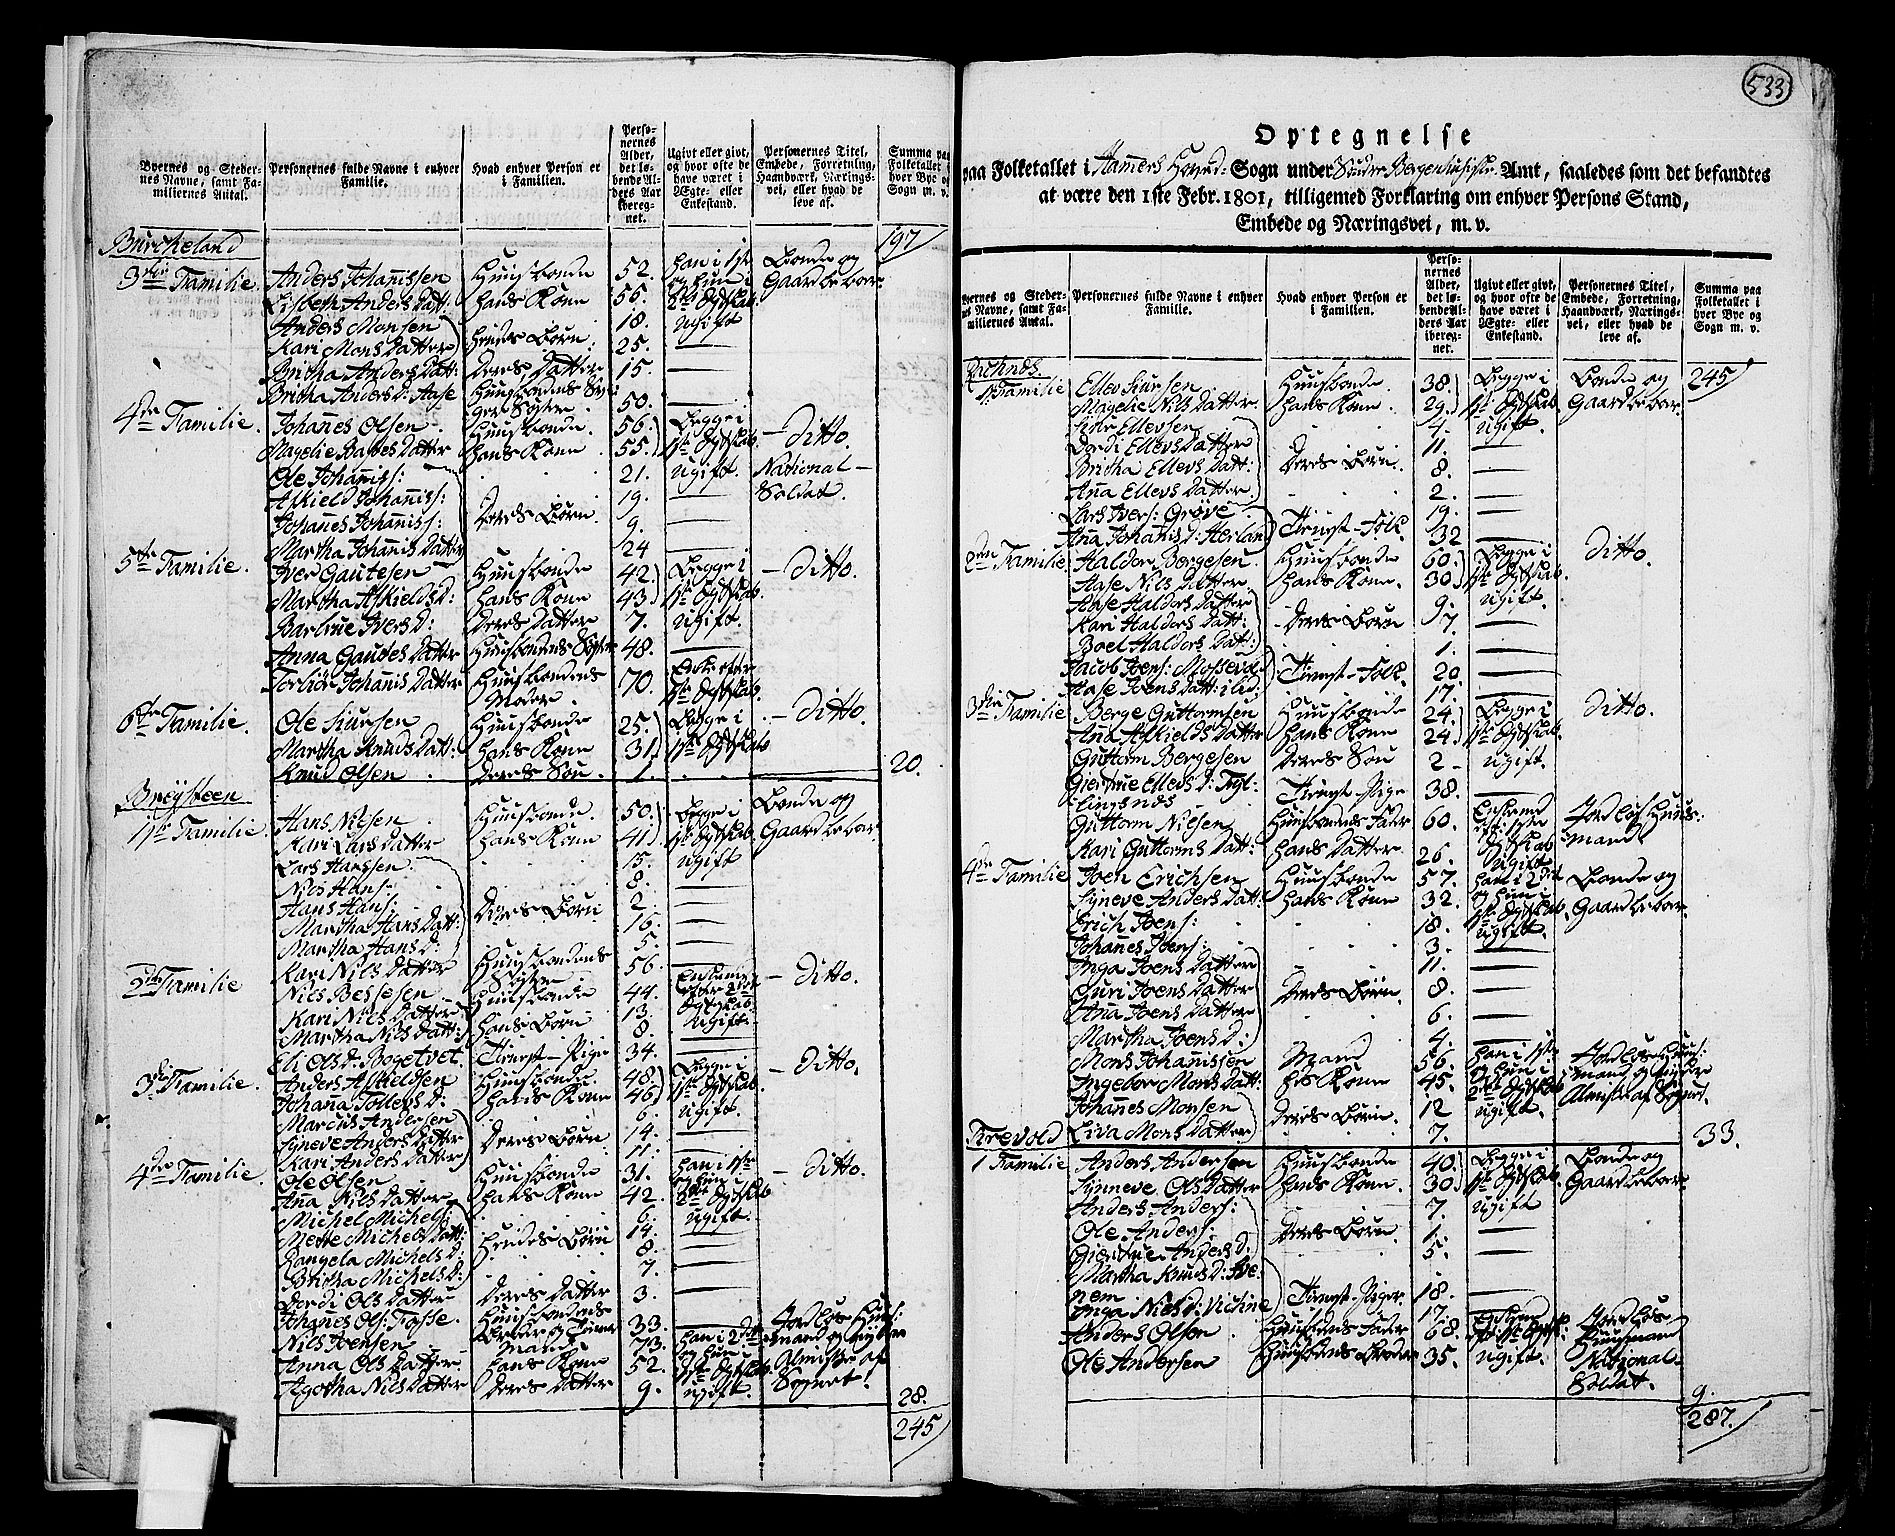 Byernes og Steder-
nes Navne, samt Fa-
miliernes Antal.
Personernes fulde Navne i enhver
Familie.
Hvad enhver Person er
i Familien.
Perso-
nernes
Alder,
det lø-
bende Al-
ders Aar
ibereg-
net.
Ugivt eller givt,
og hvor ofte de
have været i
Ægte- eller
Enkestand.
Personernes Titel,
Embede, Forretning,
Haandværk, Nærings-
vei, eller hvad de
leve af.
Summa paa
Folketallet i
hver Bye og
Sogn m. v.
Burcheland 197
3die Familie. Anders Johannissen Huusbonde 52. han i 1ste Bonde og
Lisbeth Anders Datt: hans Kone 55. og hun i Gaardbebor.
Anders Monsen 18. ugift
Kari Mons Datter hendes Børn. 25. —
Britha Anders Datt: Deres Datter 15. —
Britha Anders D: Aase Huusbondens Sø-
ger Søster. 50. —
4de Familie. Johannes Olsen Huusbonde. 56. Begge i — Ditto.
Magelie Baltes Datter hans Kone 55. 1ste Ægteskab
Ole Johaniss: 21. ugift. National-
Askield Johaniss: 19. — Soldat.
Johanes Johaniss: Deres Børn. 9. —
Martha Johanis Datter 24 —
5te Familie. Iver Gautesen Huusbonde 42. Begge i — Ditto.
Martha Askields D: hans Kone 43. 1ste Ægteskab.
Barbrue Ivers D: Deres Datter 7. ugift.
Anna Gaudes Datter Huusbondens Søster 48. —
Torbiør Johanis Datter Huusbondens 70. Enke efter
Moder. 1ste Ægteskab.
6te Familie. Ole Siursen Huusbonde 25. Begge i — Ditto.
Martha Knuds Datt: hans Kone 31. 1ste Ægteskab
Knud Olsen Deres Søn 1. 20.
Brøysteen
1ste Familie. Hans Nilsen Huusbonde. 50. Begge i Bonde og
Kari Lars Datter hans Kone 41. 1ste Ægteskab Gaardbebor.
Lars Hanssen 15. ugift
Nils Hans: 8. —
Hans Hans: Deres Børn 2. —
Martha Hans Datt: 16. —
Martha Hans D: 5. —
Kari Nils Datter Huusbondens
Søster 56. —
2den Familie Nils Bessesen Huusbonde 44. — Ditto.
Kari Nils Datter 13. Ægteskab
Martha Nils Datt: hans Børn 8. ugift.
Eli Ols D: Bogetvet. Tienest-Pige 34. —
3die Familie. Anders Askieldsen Huusbonde. 48. Begge i — Ditto.
Johana Tollevs D: hans Kone 46. 1ste Ægteskab
Marcus Andersen 6. ugift
Syneve Anders Datter Deres Børn 14. —
Kari Anders Datter 11. —
4de Familie. Ole Olsen Huusbonde 31. han i 1ste — Ditto.
Ana Nils Datter hans Kone 42. og hun i
Michel Michels: 6. ugift.
Mette Michels Datt: hendes Børn 14. —
Rangela Michels D: 8. —
Britha Michels D: 7. —
Dordi Ols Datter Deres Datter 3. —
Johanes Ols: Fosse. Huusbondens 33. —
Nils Joensen Mand 73. han i 2det Jordløs Huus-
Anna Ols Datter hans Kone 52. og hun i mand og nyder
Agotha Nils Datter Deres Datter 9. ugift. Almisse af
Sognet. 28.
245
533
Optegnelse
paa Folketallet i Hamers Hoved-Sogn under Søndre Bergenhuus Amt, saaledes som det befandtes
at være den 1ste Febr. 1801, tilligemed Forklaring om enhver Persons Stand,
Embede og Næringsvei, m. v.
Byernes og Steder-
nes Navne, samt Fa-
miliernes Antal.
Personernes fulde Navne i enhver
Familie.
Hvad enhver Person er
i Familien.
Perso-
nernes
Alder,
det lø-
bende Al-
ders Aar
ibereg-
net.
Ugivt eller givt,
og hvor ofte de
have været i
Ægte- eller
Enkestand.
Personernes Titel,
Embede, Forretning,
Haandværk, Nærings-
vei, eller hvad de
leve af.
Summa paa
Folketallet i
hver Bye og
Sogn m. v.
1ste Familie Ellev Siursen Huusbonde. 38. Begge i Bonde og 245
Magelie Nils Datter. hans Kone. 29. 1ste Ægteskab. Gaardbebor.
Siur Ellevsen 4. ugift.
Dordi Ellevs Datter 11. —
Britha Ellevs Datt: Deres Børn. 8. —
Ana Ellevs Datter. 2. —
Lars Ivers: Grøve 19. —
Ana Johanis D: Herland Tienest-Folk. 32 —
2den Familie. Haldor Bergesen. Huusbonde 60. Begge i Ditto.
Aase Nils Datter. hans Kone. 30. 1ste Ægteskab.
Aase Haldors Datter 9. ugift.
Kari Haldors Datt: Deres Børn 7. —
Boel Haldors Datt: 1. —
Jacob Joens: Mossevold Tienest-Folk. 20. —
Aase Joens Datt: ibid: 17. —
3die Familie Berge Guttormsen Huusbonde 24. Begge i Ditto.
Ana Askields Datter hans Kone 24. 1ste Ægteskab.
Guttorm Bergesen Deres Søn 2 ugift.
Giertrue Ellevs D: Tyt-
lingsnes Tienest-Pige 38. —
Guttorm Nilsen Huusbondens Fader 60. Jordløs Huus-
Kari Guttorms Datt: hans Datter. 26. ugift. mand
4de Familie Joen Erichsen Huusbonde 57. han i 2det Bonde og
Syneve Anders Datt: hans Kone 32. og hun i Gaardbebor.
Erich Joens: 18. ugift.
Johanes Joens: 3. —
Inga Joens Datter 11. —
Guri Joens Datter Deres Børn. 8. —
Ana Joens Datter 6. —
Martha Joens D: 4. —
Mons Johannissen Mand 56. han i 1ste Jordløs Huus-
Ingebor Mons Datt: hs Kone 45. og hun i mand og nyder
Johanes Monsen Deres Børn. 12 ugift. Almisse af Sognet.
Liva Mons Datter 7. — 33.
Krevold
1 Familie Anders Andersen Huusbonde 40. Begge i Bonde og
Synneve Ols Datter hans Kone. 30. 1ste Ægteskab. Gaardbebor.
Anders Anders: 7. ugift
Ole Anders: Deres Børn. 1. —
Giertrue Anders D. 5. —
Martha Knuds D: Tve-
nem Tienest-Piger. 18. —
Inga Niels D: Vichne 17. —
Anders Olsen Huusbondens Fader 68. Jordløs
Huusmand
Ole Andersen Huusbondens Broder 35. ugift. National-
Soldat. 9.
287.